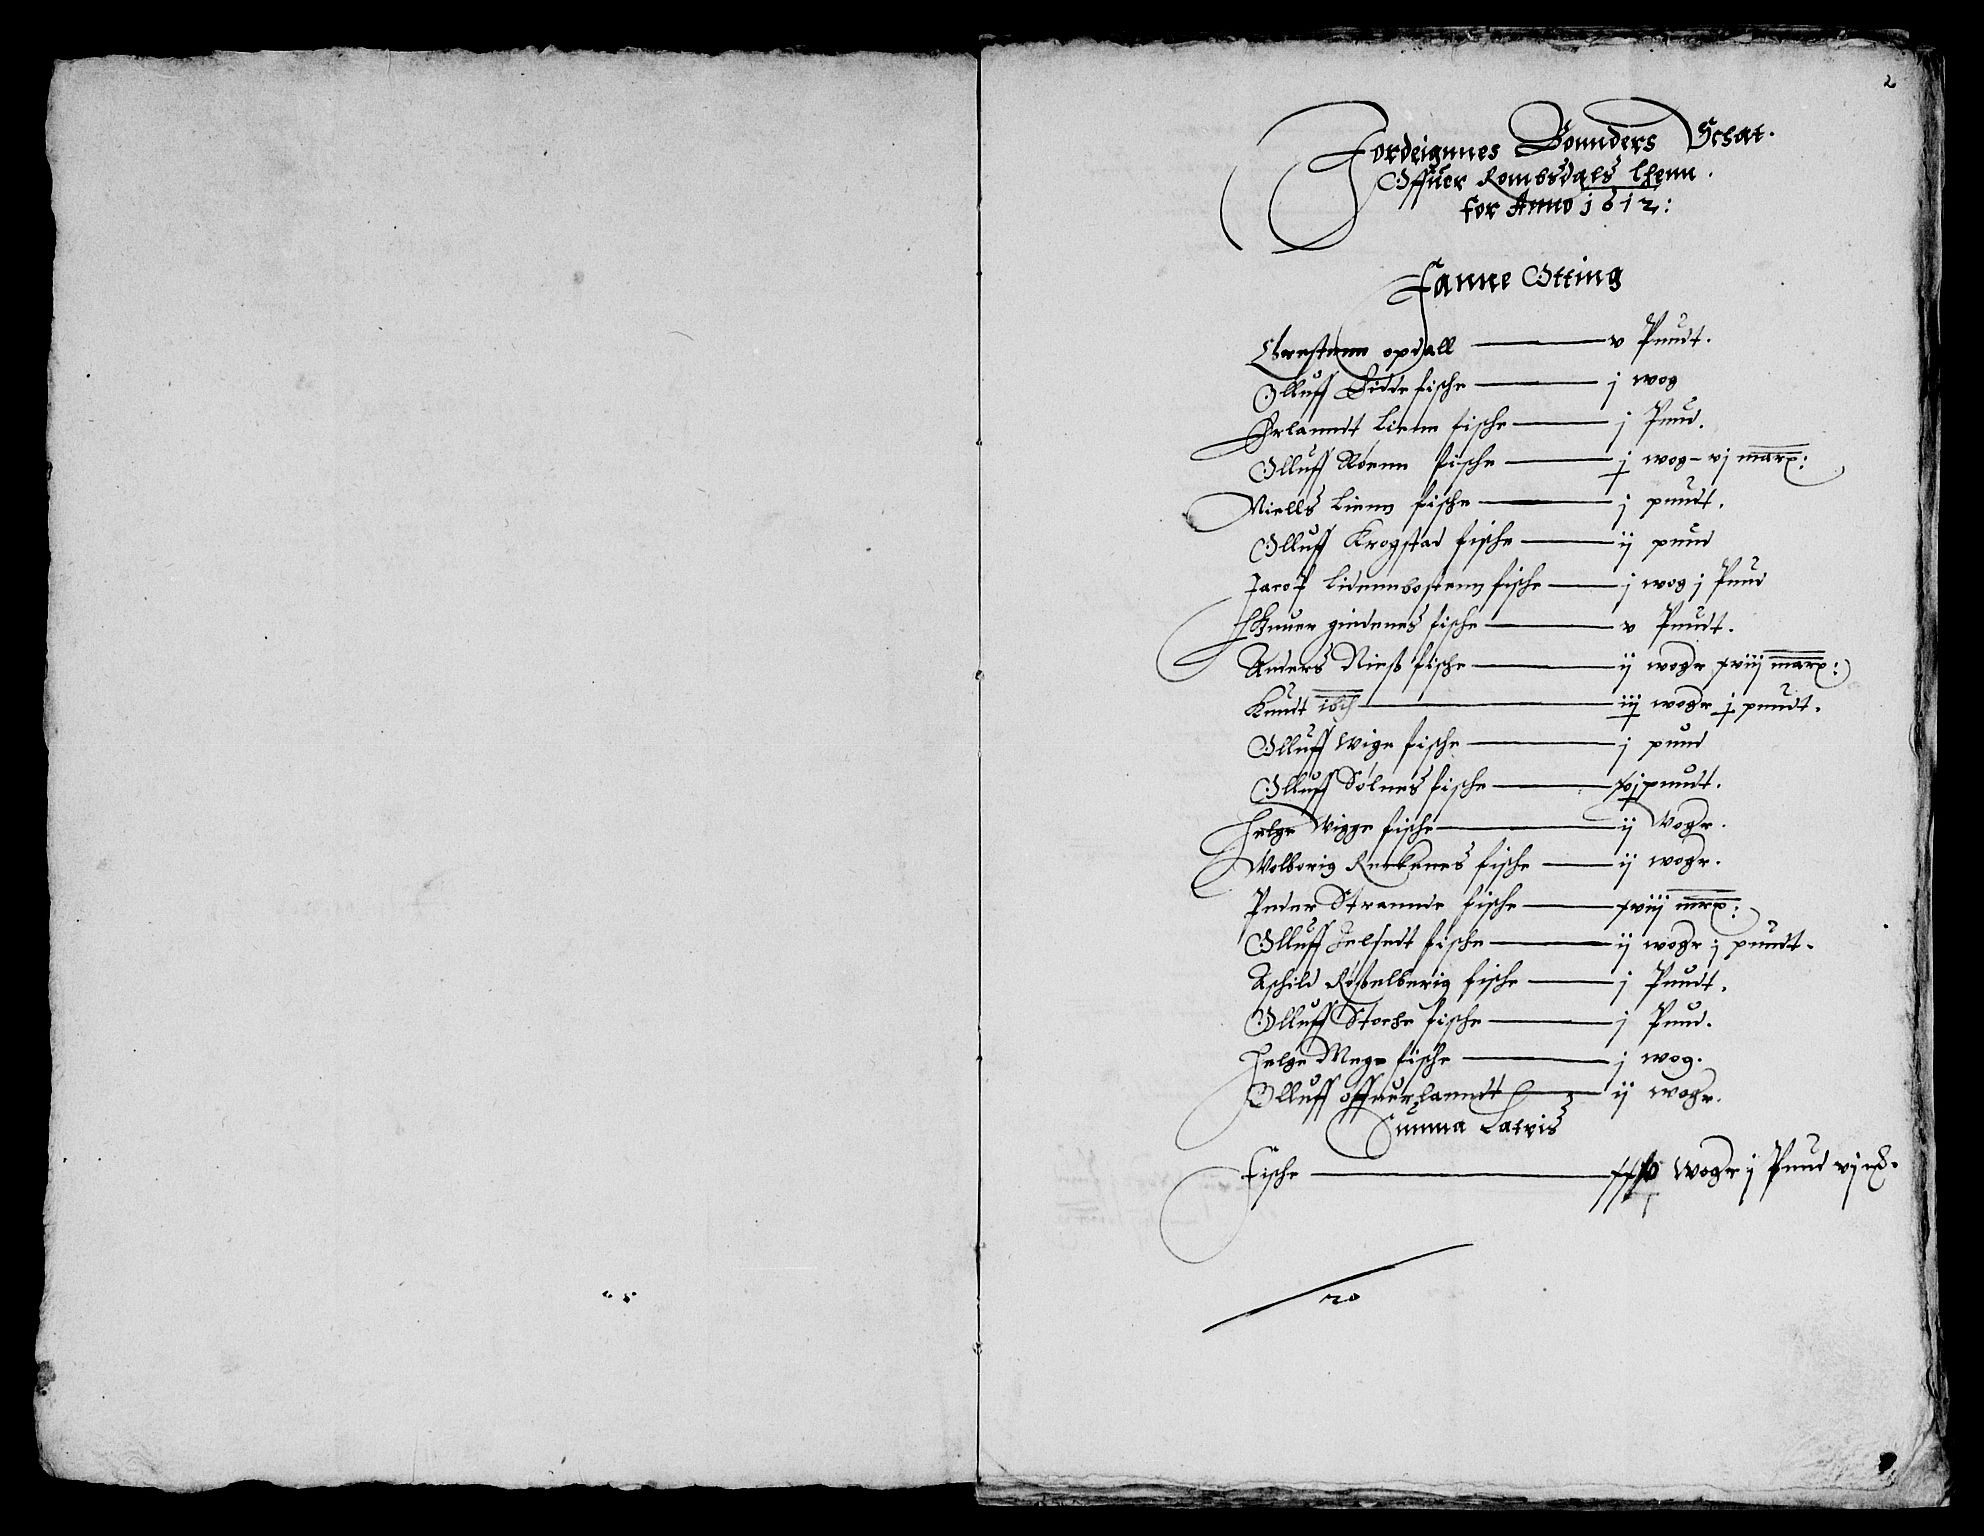 2
Jordeignnes Bonnders Schat.
Offuer Rombsdals lhenn.
for Anno j612:
Fanne Otting
Chrestenn opdall — v Pundt.
Olluff Bidde fische — j wog
Erlanndt Lienn fische — j Pund.
Olluff Roenn fische — j wog – vj marx:
Niells Lienn fische — j pundt.
Olluff Krogstad fische — ij pund
Jacop Lidennbostenn fische — j wog j Pund
Ennuer fische — v Pundt.
Anders Nieß fische — ij woger xviij marx:
Knudt ibid — iij woger j pundt.
Olluff Wige fische — j pund
Olluff Solnes fische — pundt.
Helge Wigge fische — ij Voger.
Wolborig Reckenes fische — ij woger.
Peder Strannde fische — xviij mrx:
Olluff Helsedt fische — ij woger j pundt.
Aschild Rößelberig fische — j Pundt.
Olluff Stocke fische — j Pund.
Helge Mege fische — j wog.
Olluff offuerlanndt — ij woger.
Summa Latris
Fische — Woger j Pund vj
20